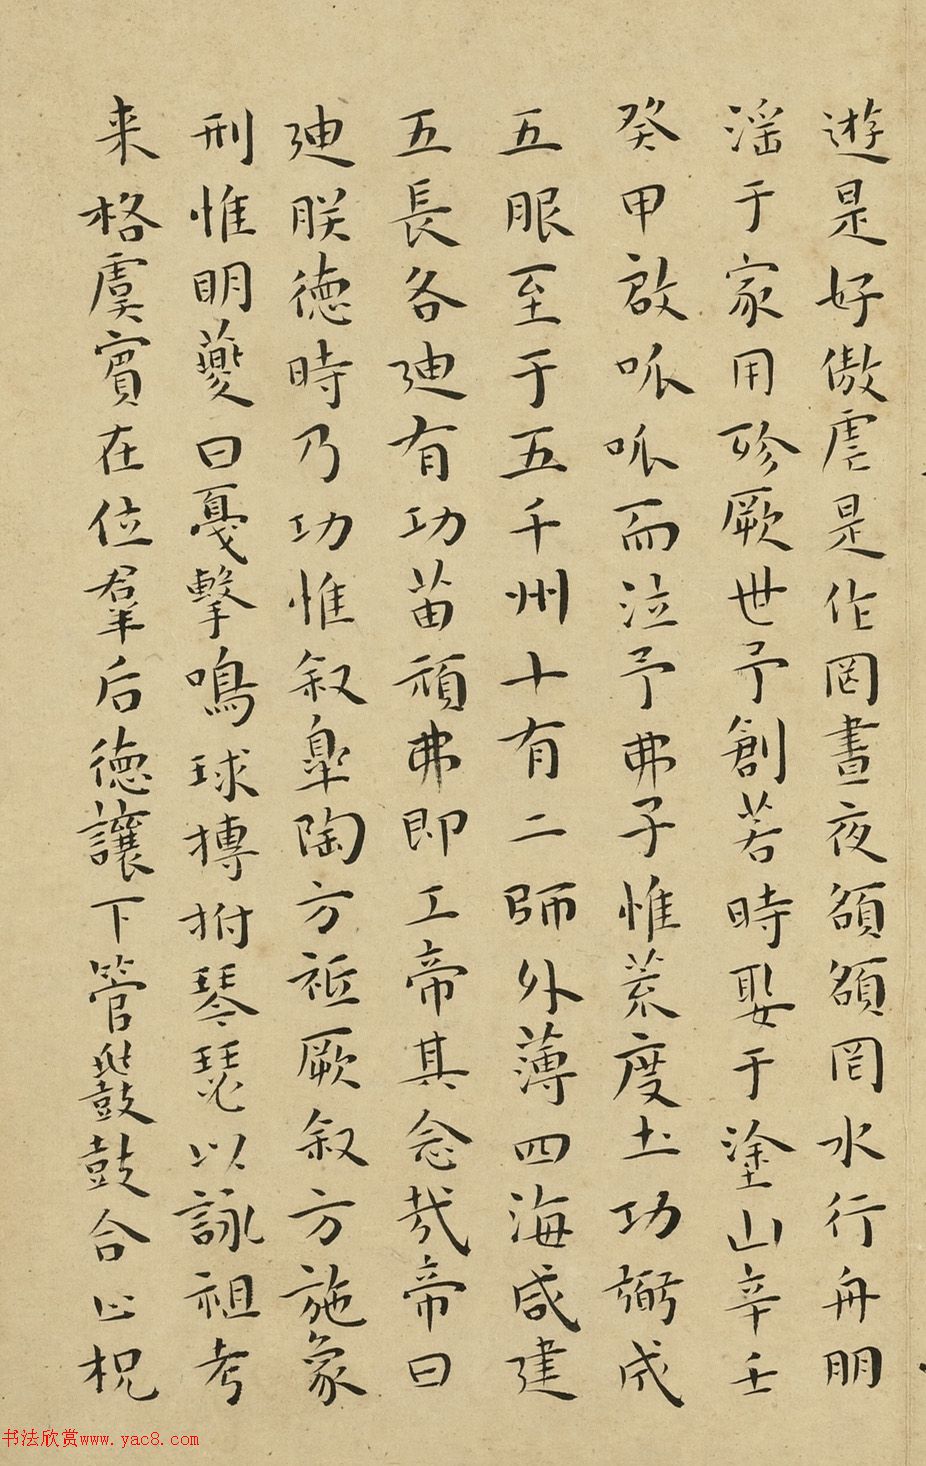 遊是好傲虐是作罔晝夜頟頟罔水行舟朋
滛于家用殄厥世予創若時娶于塗山辛壬
癸甲啟呱呱而泣予弗子惟荒度土功弼成
五服至于五千州十有二師外薄四海咸建
五長各迪有功苗頑弗即工帝其念哉帝曰
迪朕徳時乃功惟叙臯陶方祗厥叙方施象
刑惟明夔曰戛擊鳴球搏拊琴瑟以詠祖考
来格虞賓在位羣后徳讓下管鼗鼓合止柷
书法欣赏www.yac8.com